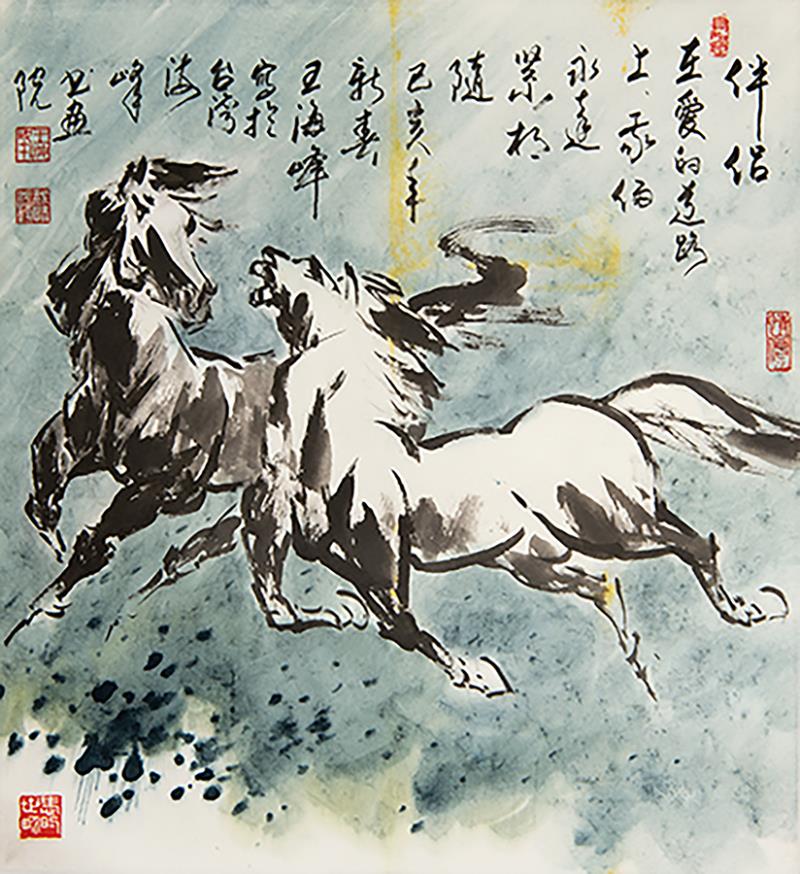 伴侶
在愛的道路
上、我倆
永遠
緊相
隨
己亥年
新春
王海峰
寫於
台灣
海
峰
书画
院